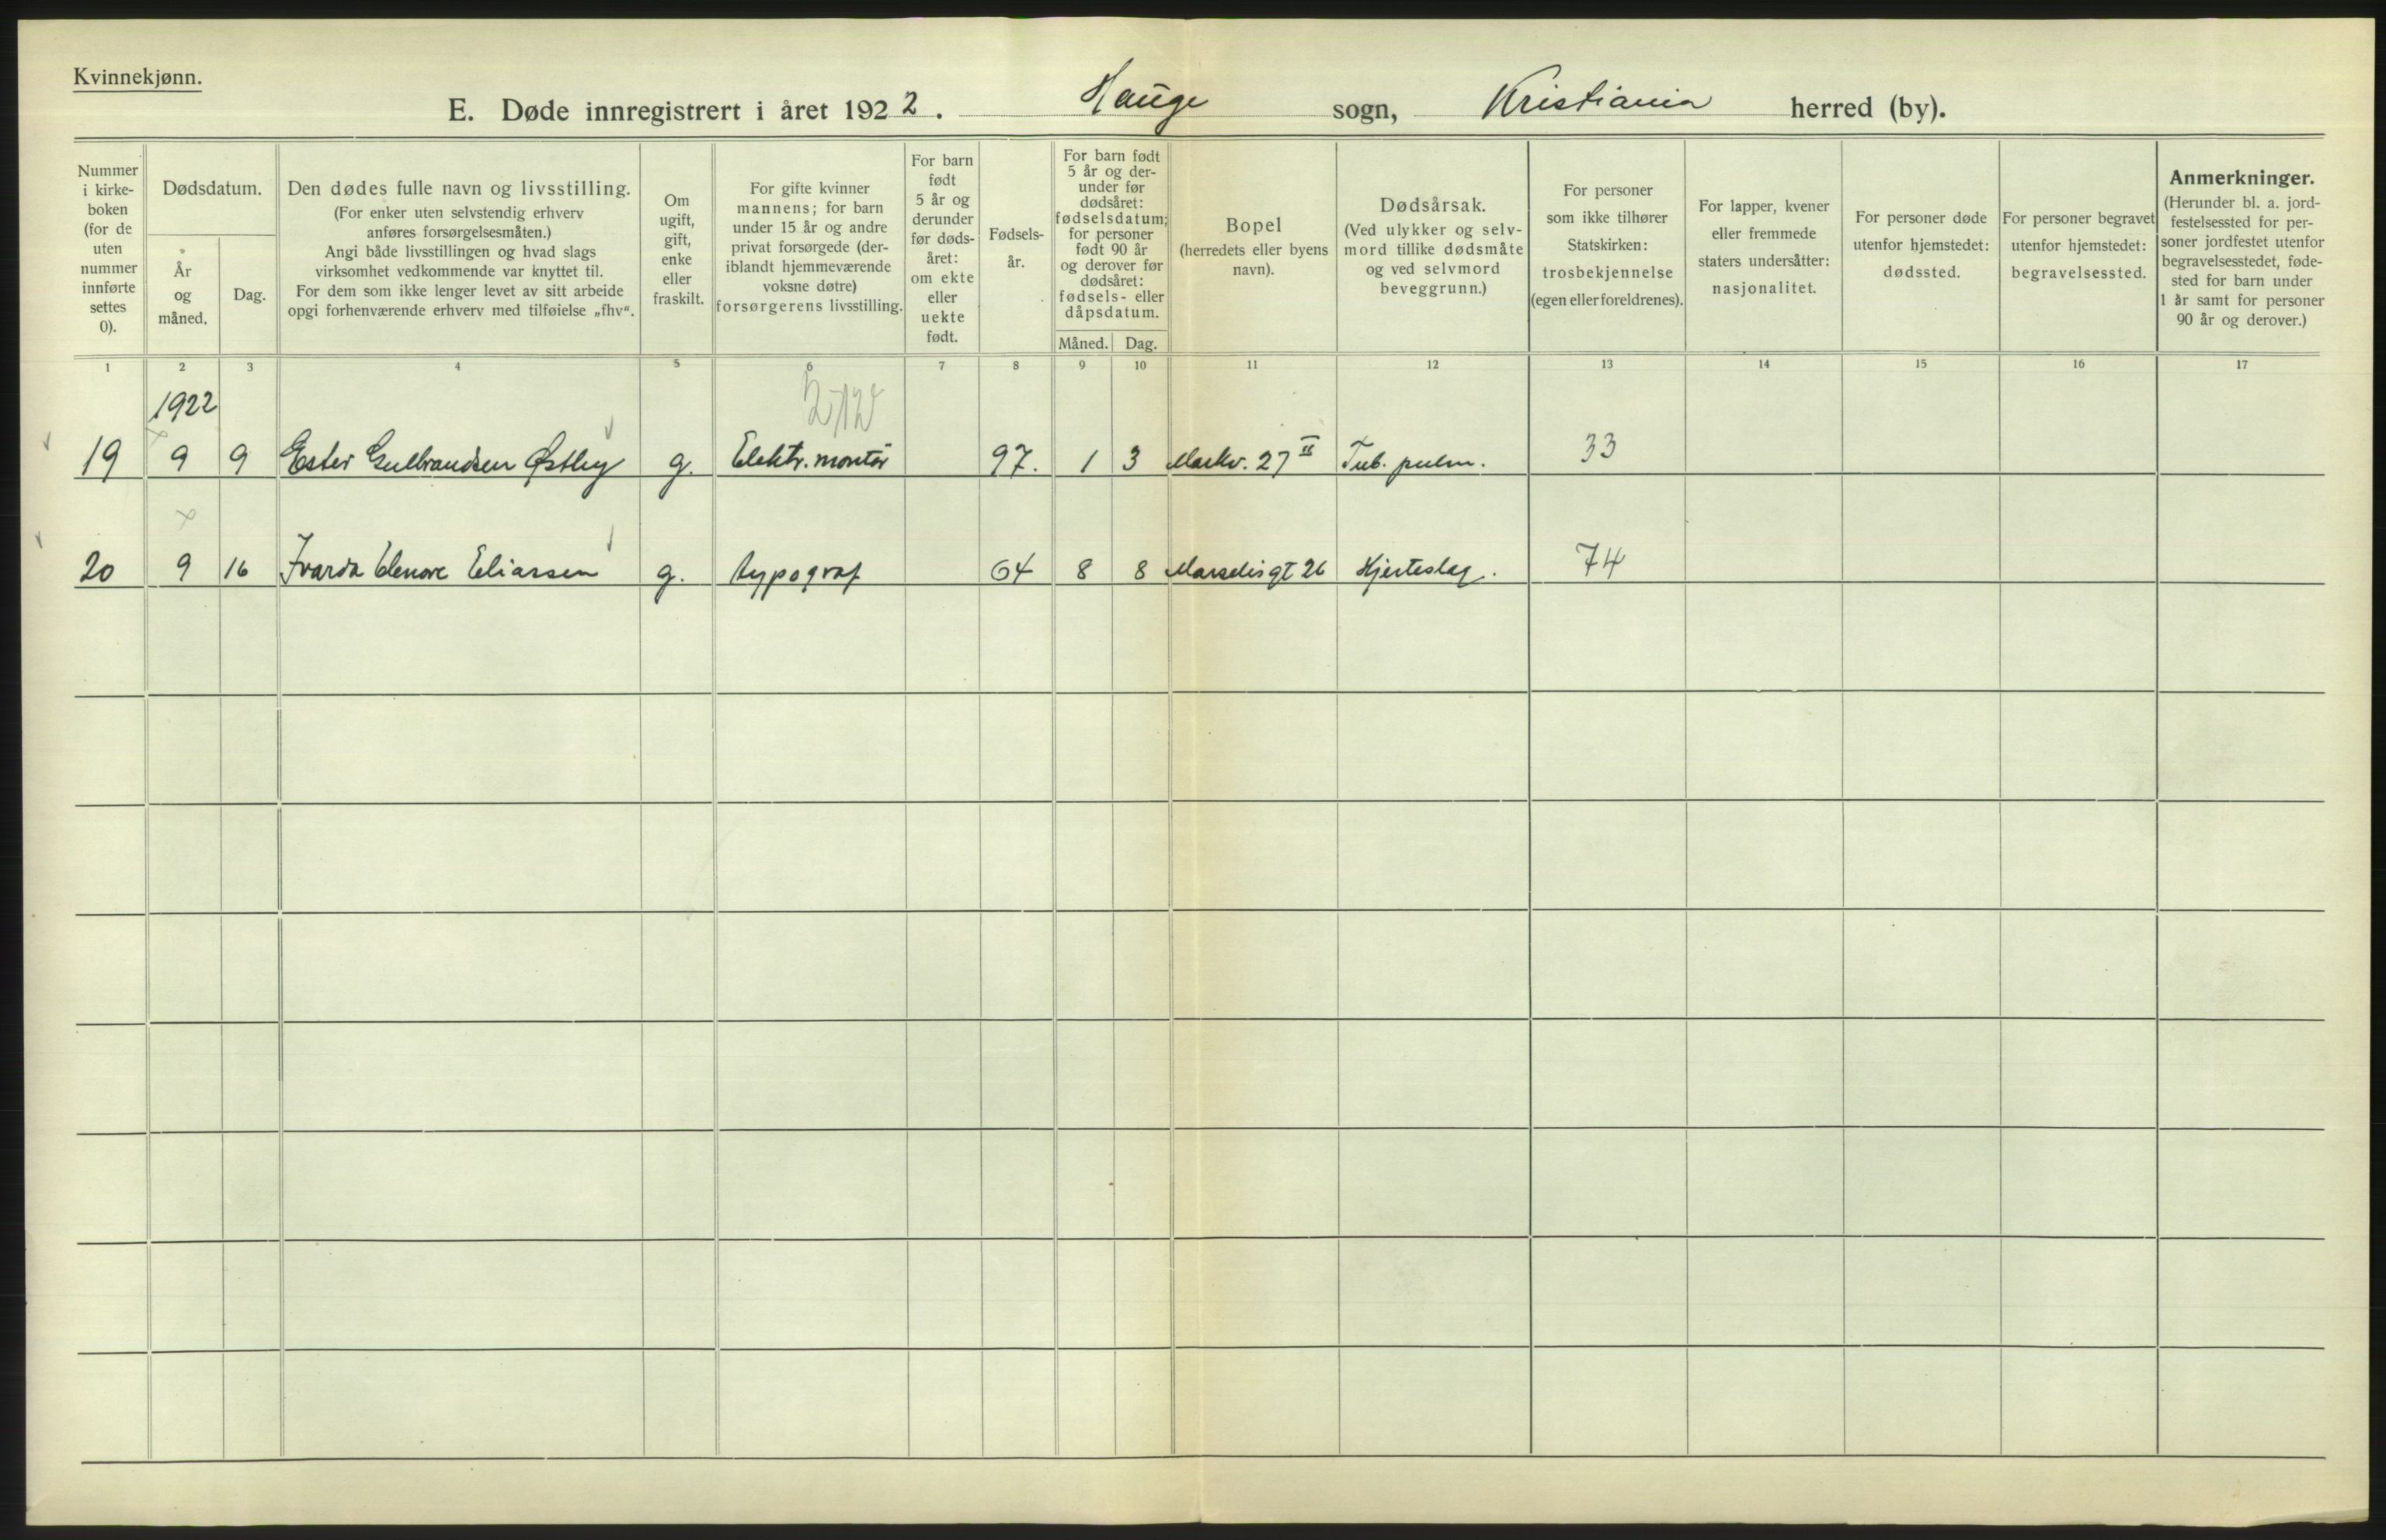 Kvinnekjønn.
E. Døde innregistrert i året 1922. Hauge sogn, Kristiania herred (by).
Nummer
i kirke-
boken
(for de
uten
nummer
innførte
settes
0).
Dødsdatum.
År
og
måned.
Dag.
Den dødes fulle navn og livsstilling.
(For enker uten selvstendig erhverv
anføres forsørgelsesmåten.)
Angi både livsstillingen og hvad slags
virksomhet vedkommende var knyttet til.
For dem som ikke lenger levet av sitt arbeide
opgi forhenværende erhverv med tilføielse „fhv“.
Om
ugift,
gift,
enke
eller
fraskilt.
For gifte kvinner
mannens; for barn
under 15 år og andre
privat forsørgede (der-
iblandt hjemmeværende
voksne døtre)
forsørgerens livsstilling.
For barn
født
5 år og
derunder
før døds-
året:
om ekte
eller
uekte
født.
Fødsels-
år.
For barn født
5 år og der-
under før
dødsåret:
fødselsdatum;
for personer
født 90 år
og derover før
dødsåret:
fødsels- eller
dåpsdatum.
Måned. Dag.
Bopel
(herredets eller byens
navn).
Dødsårsak.
(Ved ulykker og selv-
mord tillike dødsmåte
og ved selvmord
beveggrunn.)
For personer
som ikke tilhører
Statskirken:
trosbekjennelse
(egen eller foreldrenes).
For lapper, kvener
eller fremmede
staters undersåtter:
nasjonalitet.
For personer døde
utenfor hjemstedet:
dødssted.
For personer begravet
utenfor hjemstedet:
begravelsessted.
Anmerkninger.
(Herunder bl. a. jord-
festelsessted for per-
soner jordfestet utenfor
begravelsesstedet, føde-
sted for barn under
1 år samt for personer
90 år og derover.)
1 2 3 4 5 6 7 8 9 10 11 12 13 14 15 16 17
1922
19 9 9 Ester Gulbrandsen Østby g. Elektr. montör 97. 1 3 Markv. 27 II Tub. pulm. 33
20 9 16 Ivarda Elenore Eliassen g. typograf 64 8 8 Marselisgt 26 Hjerteslag. 74